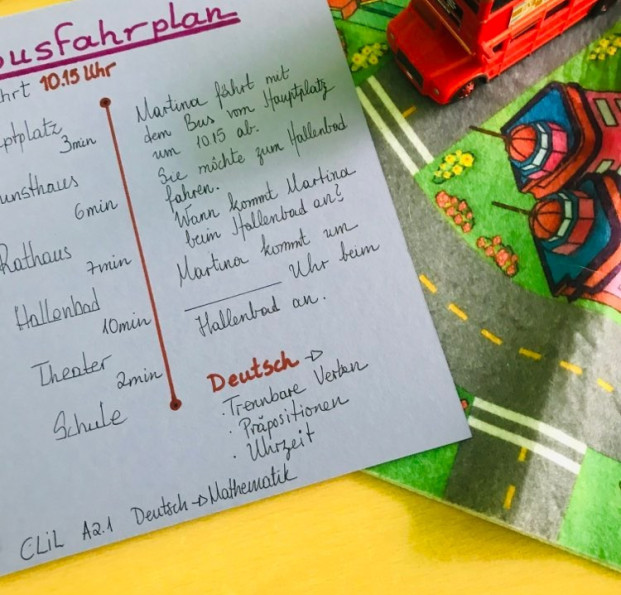 usfahrplan
hrt 10.15 Uhr
ptplatz
3min
unsthaus
6min
Rathaus
7min
Hallenbad
10min
Theater
2min
Schule
Martina fährt mit
dem Bus vom Hauptplatz
um 10.15 ab.
Sie möchte zum Hallenbad
fahren.
Wann kommt Martina
beim Hallenbad an?
Martina kommt um
________ Uhr beim
Hallenbad an.
Deutsch →
· Trennbare Verben
· Präpositionen
· Uhrzeit
CLiL A2.1 Deutsch → Mathematik